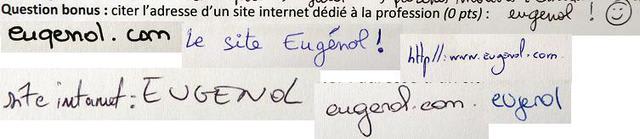 Question bonus : citer l'adresse d'un site internet dédié à la profession (0 pts) : eugenol !
eugenol.com
Le site Eugénol !
http//:www.eugenol.com
site internet : EUGENOL
eugenol.com
eugenol